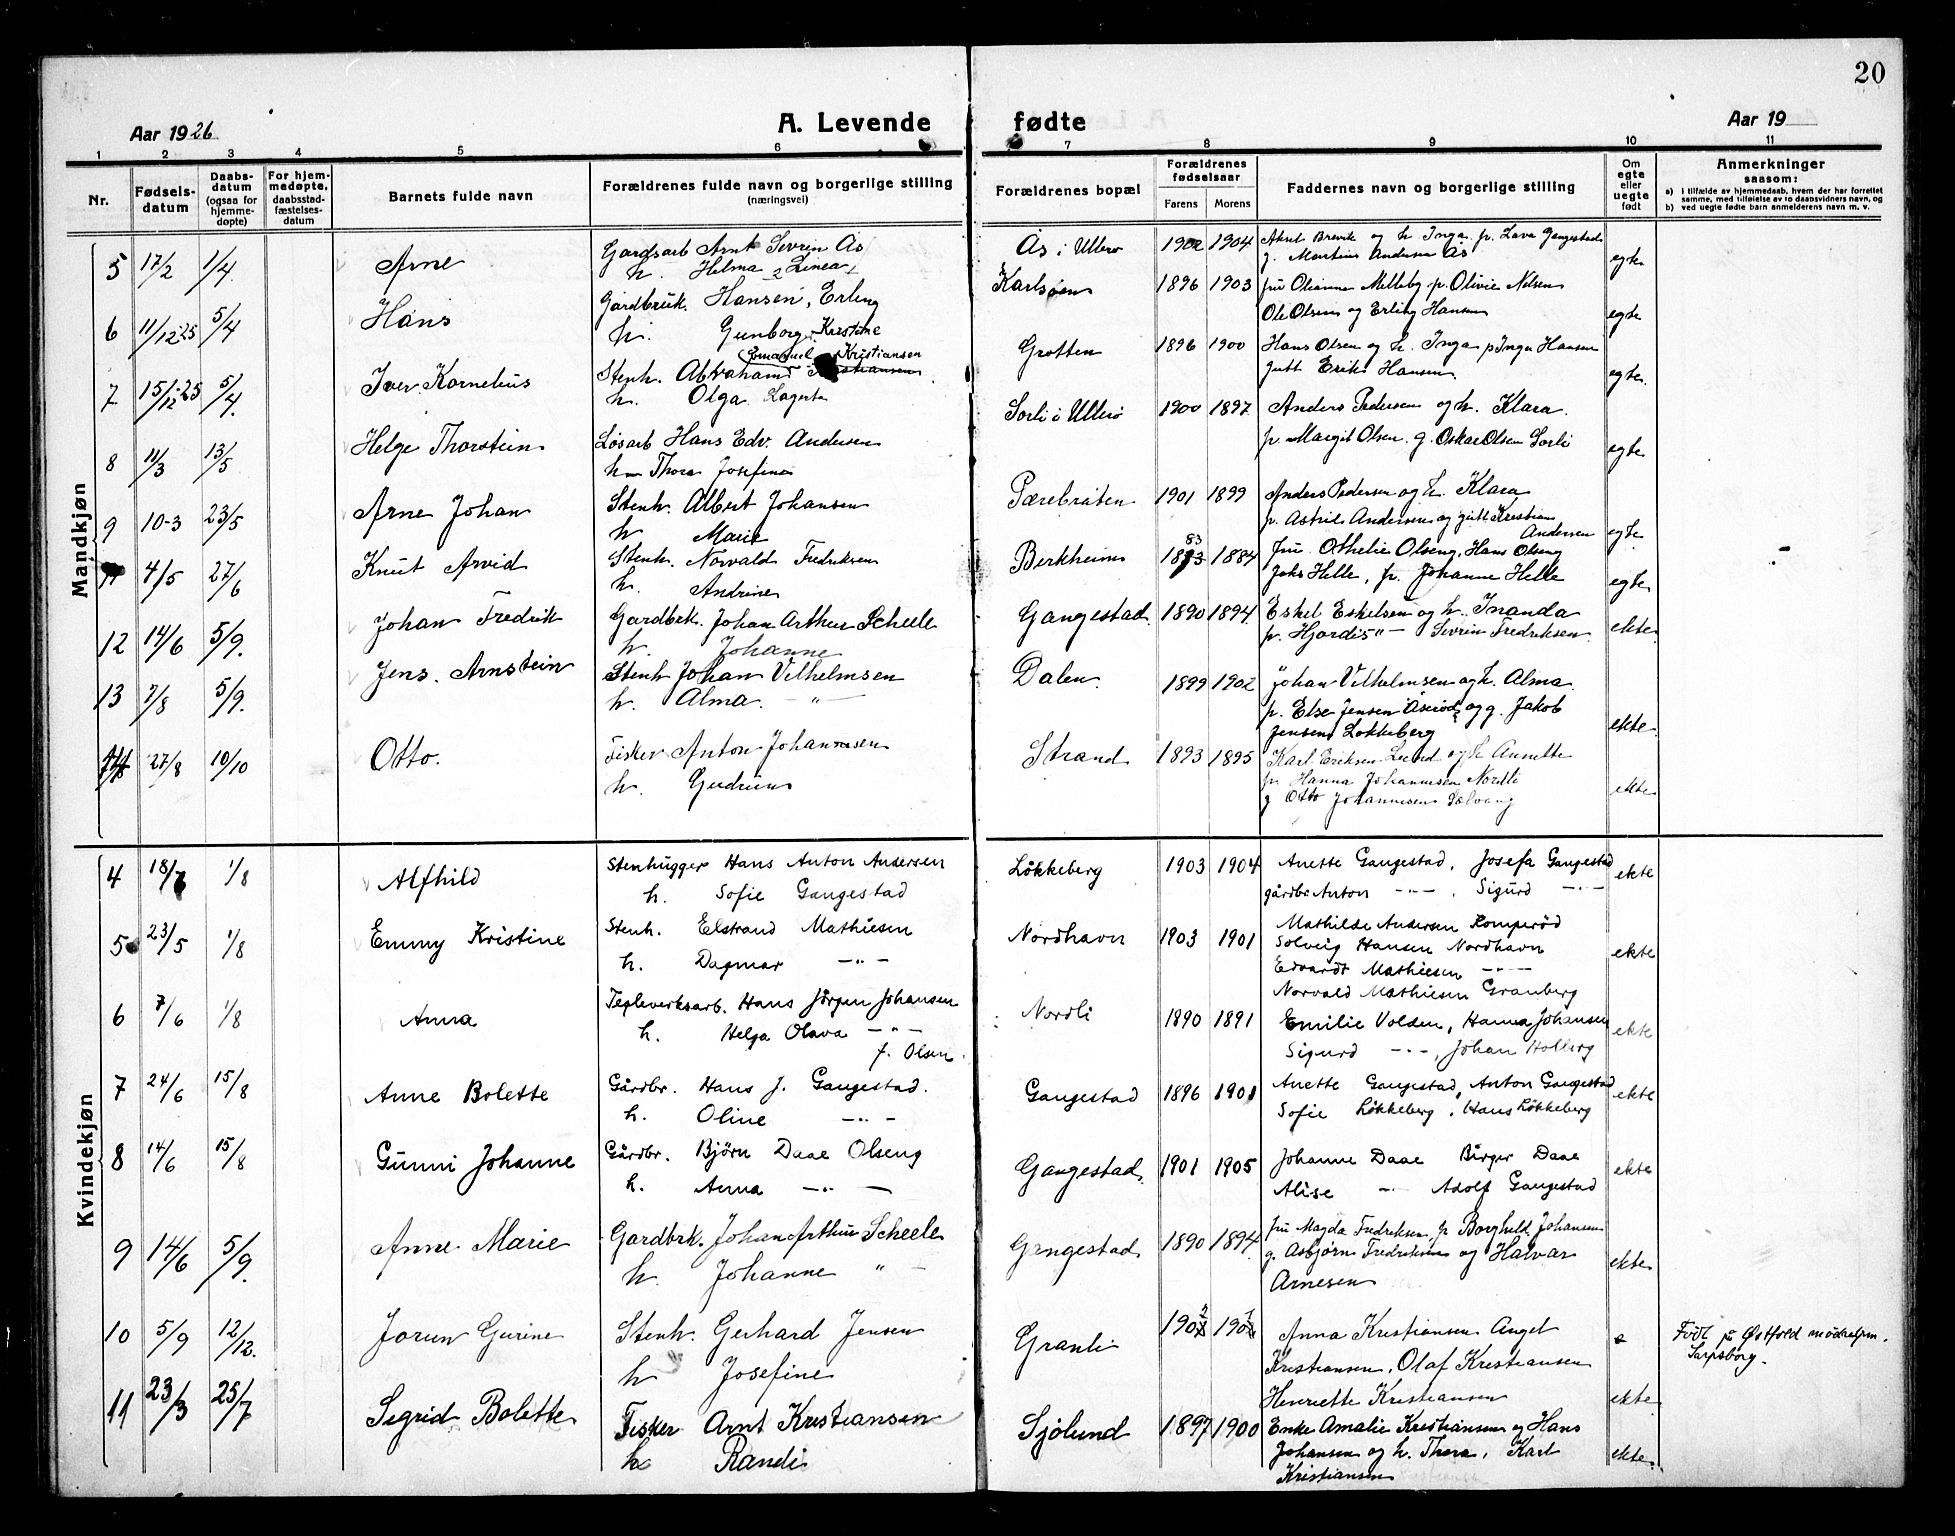 20
Aar 1926
A. Levende
fødte
Aar 19
1 2 3 4 5 6 7 8 9 10 11
Nr.
Fødsels-
datum
Daabs-
datum
(ogsaa for
hjemme-
døpte)
For hjem-
medøpte,
daabsstad-
fæstelses-
datum
Barnets fulde navn
Forældrenes fulde navn og borgerlige stilling
(næringsvei)
Forældrenes bopæl
Forældrenes
fødselsaar
Farens Morens
Faddernes navn og borgerlige stilling
Om
egte
eller
uegte
født
Anmerkninger
saasom:
a) i tilfælde av hjemmedaab, hvem der har forrettet
samme, med tilføielse av to daabsvidners navn, og
b) ved uegte fødte barn anmelderens navn m. v.
Mandkjøn
5 17/2 1/4 Arne Gardsarb Arnt Sevrin Ås Ås i Ullerø 1902 1904 Aksel Brevik og h. Inga p. Lava Gangestad
h. Helma Linea g. Martins Andersen Ås egte
6 11/12-25 5/4 Hans Gårdbruk. Hansen, Erling Karlsøen 1896 1903 fru Olianna Melleby p. Olivie Nilsen
h. Gunborg Kristine Ole Olsen og Erling Hansen egte
Emanuel Kristiansen
7 15/12-25 5/4 Iver Kornelius Stenh. Abraham Kristiansen Grotten 1896 1900 Hans Olsen og h. Inga p Inga Hansen
h. Olga Lagerta gutt Erik Hansen egte
8 11/3 13/5 Helge Thorstein Løsarb Hans Edv. Andersen Sorli i Ullerø 1900 1897 Anders Pedersen og h. Klara
h Thora Josefine p. Margit Olsen. g. Oskar Olsen Sorli egte
9 10-3 23/5 Arne Johan Stenh. Albert Johansen Pærebråten 1901 1899 Anders Pedersen og h. Klara
h Marie p. Astrid Andersen og gutt Kristian
Andersen egte
4/5 27/6 Knut Arvid Stenh. Norvald Fredriksen Berkheim 83 1884 fru Othelie Olseng, Hans Olseng
h. Andrine Johs Helle, p. Johanne Helle egte
12 14/6 5/9. Johan Fredrik Gardbrk. Johan Arthur Scheele Gangestad 1890 1894 Eskel Eskelsen og h. Inanda
h. Johanne p. Hjordis " Sevrin Fredriksen ekte
13 7/8 5/9. Jens. Arnstein Stenh Johan Vilhelmsen Dalen 1899 1902 Johan Vilhelmsen og h. Alma
h. Alma. - " - p. Else Jensen Åserød og g. Jakob
Jensen Løkkeberg ekte
14 27/8 10/10 Otto. Fisker Anton Johannesen Strand 1893 1895 Karl Eriksen og h Annette
h. Gudrun p. Hanna Johannesen Nordli
g Otto Johannesen Solvang ekte
Kvindekjøn
4 18/7 1/8 Alfhild Stenhugger Hans Anton Andersen Løkkeberg 1903 1904 Anette Gangestad, Josefa Gangestad
h. Sofie Gangestad gårdbr Anton - " - , Sigurd - " - ekte
5 23/5 1/8 Emmy Kristine Stenh. Elstrand Mathiesen Nordhavn 1903 1901 Mathilde Andersen Romperød
h. Dagmar - " - Solveig Hansen Nordhavn
Edvardt Mathiesen - " - ekte
Norvald Mathiesen Granberg
6 7/6 1/8 Anna Teglverksarb. Hans Jørgen Johansen Nordli 1890 1891 Emilie Volden, Hanna Johansen
h. Helga Olava - " - Sigurd - " - , Johan Holberg ekte
f. Olsen.
7 24/6 15/8 Anne Bolette Gårdbr. Hans J. Gangestad. Gangestad 1896 1901 Anette Gangestad, Anton Gangestad
h. Oline - " - Sofie Løkkeberg, Hans Løkkeberg ekte
8 14/6 15/8 Gunni Johanne Gårdbr. Bjørn Daae Olseng Gangestad 1901 1905 Johanne Daae Birger Daae
h. Anna - " - Alise - " - Adolf Gangestad ekte
9 14/6 5/9. Anne Marie Gardbrk. Johan Arthur Scheele Gangestad 1890 1894 fru Magda Fredriksen p Borghild Johansen
h. Johanne " - g. Asbjørn Fredriksen og Halvar
Arnesen ekte
10 5/9 12/12. Jorun Gurine Stenh. Gerhard Jensen Granli Anna Kristiansen Angel e Født på Østfold mødrehjem.
h Josefine Kristiansen, Olaf Kristiansen Sarpsborg.
Henriette Kristiansen ekte
11 23/3 25/7 Sigrid Bolette Fisker Arnt Kristiansen Sjølund 1897 1900 Enke Amalie Kristiansen og Hans
h Randi Johansen og h. Thora, Karl
Kristiansen ekte.